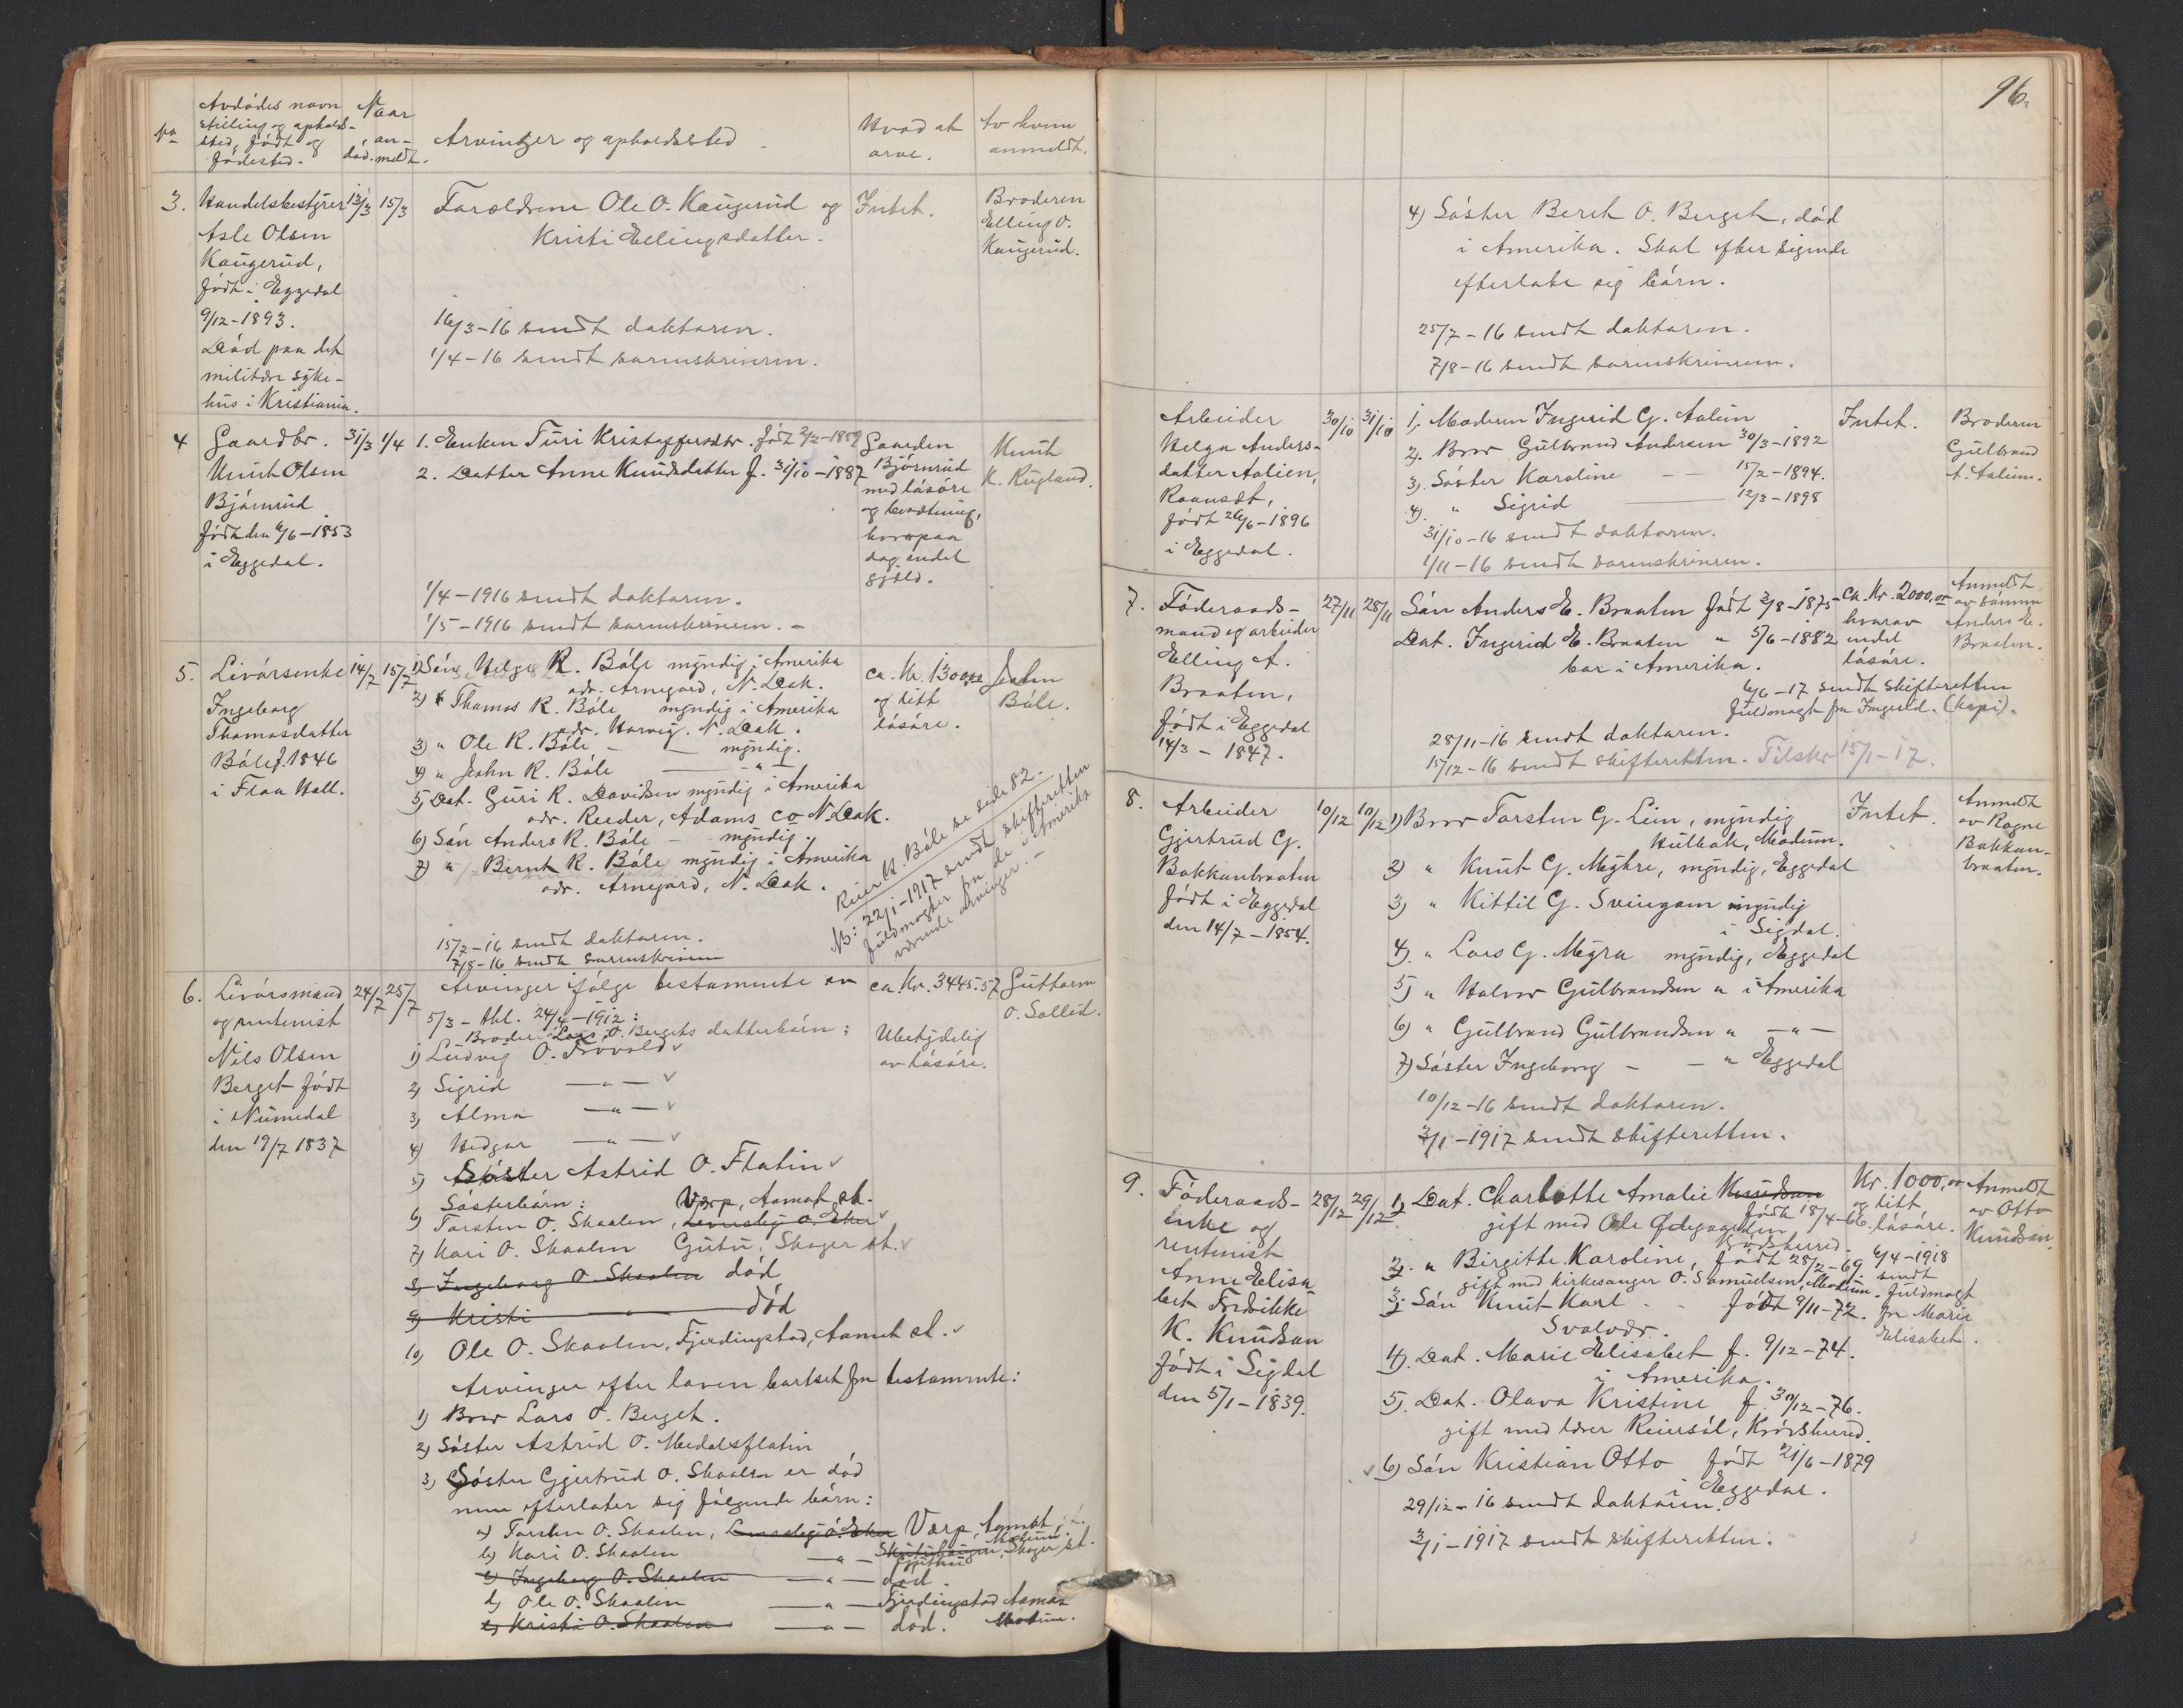 No
Avdødes navn
stilling og ophold-
sted, født og
fødested.
Naar
død.
an-
meldt.
Arvinger og opholdssted.
Hvad at
arve.
Av hvem
anmeldt.
3.
Handelsbestyrer
Asle Olsen
Kaugerud,
født i Eggedal
9/12-1893.
Død paa det
militære syke-
hus i Kristiania.
13/3
15/3
Forældrene Ole O. Kaugerud og
Kristi Ellingsdatter.
16/3-16 sendt doktoren.
1/4-16 sendt sorenskriveren.
Intet.
Broderen
Elling O.
Kaugerud.
4
Gaardbr.
Knut Olsen
Bjørnrud
født den 6/6-1853
i Eggedal.
31/3
1/4
1. Enken Turi Kristoffersdtr. født 2/2-1859
2. Datter Anne Knudsdatter f. 31/10-1887
1/4-1916 sendt doktoren.
1/5-1916 sendt sorenskriveren.-
Gaarden
Bjørnrud
med løsøre
og besætning,
hvorpaa
dog endel
gjæld.
Knut
K. Rugland.
5.
Livørsenke
Ingeborg
Thomasdatter
Bøle f. 1846
i Flaa Hall.
14/7
15/7
1) Søn Helge R. Bøle myndig i Amerika
adr. Arnegard, N. Dak.
2) " Thomas R. Bøle myndig i Amerika
adr. Harvig. N. Dak.
3) " Ole R. Bøle - — myndig.
4) " John R. Bøle — " —
5) Dat. Guri R. Davidsen myndig i Amerika
adr. Reeder, Adams Co N. Dak.
6) Søn Anders R. Bøle - myndig.
7) " Bernt R. Bøle myndig i Amerika
adr. Arnegard, N. Dak.
15/7-16 sendt doktoren.
7/8-16 sendt sorenskriveren
ca. Kr. 1300,00
og litt
løsøre.
John
Bøle.
Reier K. Bøle se side 82.
N: 22/1-1917 sendt skifteretten
fuldmagter fra de i Amerika
værende arvinger.-
6.
Livørsmand
og rentenist
Nils Olsen
Berget født
i Numedal
den 19/7 1837
24/7
25/7
Arvinger ifølge testamente av
5/3 - thl. 24/4-1912:
Broder Lars O. Bergets datterbørn:
1) Ludvig O. Frøvold ✓
2) Sigrid — " — ✓
3) Alma — " — ✓
4) Hedgar — " — ✓
5) Søster Astrid O. Flatin ✓
Søsterbørn: Værp, Aamot st.
6) Torsten O. Skaalen, ✓
7) Kari O. Skaalen Gutu, Skoger st. ✓
8) Ingeborg O. Skaalen død
9) Kristi — " — død
10) Ole O. Skaalen, Fjerdingstad, Aamot st. ✓
Arvinger efter loven bortset fra testamente:
1) Bror Lars O. Berget.
2) Søster Astrid O. Medalsflatin
3) Søster Gjertrud O. Skaalen er død
men efterlater sig følgende børn:
a) Torsten O. Skaalen, Værp, Aamot st.
b) Kari O. Skaalen — " — Skoger st.
c) Ingeborg O. Skaalen — " — død.
d) Ole O. Skaalen — " — Fjerdingstad Aamot
e) Kristi O. Skaalen — " — død. Modum.
ca. Kr. 3445.57
Ubetydelig
av løsøre.
Guttorm
O. Sollid.
96.
4) Søster Beret O. Berget, død
i Amerika. Skal efter sigende
efterlate sig børn.
25/7-16 sendt doktoren.
7/8-16 sendt sorenskriveren.
Arbeider
Helga Anders-
datter Aalien,
Raanset,
født 26/6-1896
i Eggedal.
30/10
31/10
1. Moderen Ingerid G. Aalien
2). Bror Gulbrand Andersen 30/3-1892
3). Søster Karoline — 15/2-1894.
4). " Sigrid — 12/3-1898
31/10-16 sendt doktoren.
1/11-16 sendt sorenskriveren.
Intet.
Broderen
Gulbrand
A. Aalien.
7.
Føderaads-
mand og arbeider
Elling A.
Braaten,
født i Eggedal
14/3-1847.
27/11
28/11
Søn Anders E. Braaten født 2/8-1875
Dat. Ingerid E. Braaten " 5/6-1882
bor i Amerika.
6/6-17 sendt skifteretten
fuldmagt fra Ingerid. (kopi).
28/11-16 sendt doktoren.
15/12-16 sendt skifteretten. Tilskr 15/1-17.
ca. Kr. 2000,00
hvorav
endel
løsøre.
Anmeldt
av sønnen
Anders E.
Braaten.
8.
Arbeider
Gjertrud G.
Bakkenbraaten
født i Eggedal
den 14/7-1854.
10/12
10/12
1) Bror Torsten G. Lien, myndig
Hulbak, Modum.
2) " Knut G. Myhre, myndig, Eggedal
3) " Kittil G. Svingom myndig
i Sigdal.
4). " Lars G. Myra myndig, Eggedal
5) " Halvor Gulbrandsen " i Amerika
6) " Gulbrand Gulbrandsen " — " —
7) Søster Ingeborg - - " Eggedal
10/12-16 sendt doktoren.
3/1-1917 sendt skifteretten.
Intet.
Anmeldt
av Ragne
Bakken-
braaten.
9.
Føderaads-
enke og
rentenist
Anne Elisa-
bet Fredrikke
K. Knudsen
født i Sigdal
den 5/1-1839.
28/12
29/12
1) Dat. Charlotte Amalie Knudsen
født 18/4-66.
gift med Ole Ødegaarden
Krødsherred.
2). " Birgitte Karoline, født 28/2-69
gift med kirkesanger O. Samuelsen, Modum.
3) Søn Knut Karl - - født 9/11-72.
Svolvær.
4). Dat. Marie Elisabet f. 9/12-74.
i Amerika.
5). Dat. Olava Kristine f. 30/12-76.
gift med lærer Reiersøl, Krødsherred.
✓ 6) Søn Kristian Otto født 21/6-1879
i Eggedal.
29/12-16 sendt doktoren.
3/1-1917 sendt skifteretten.
Kr. 1000,00
og litt
løsøre.
6/4-1918
sendt
fuldmagt
fra Marie
Elisabet.
Anmeldt
av Otto
Knudsen.